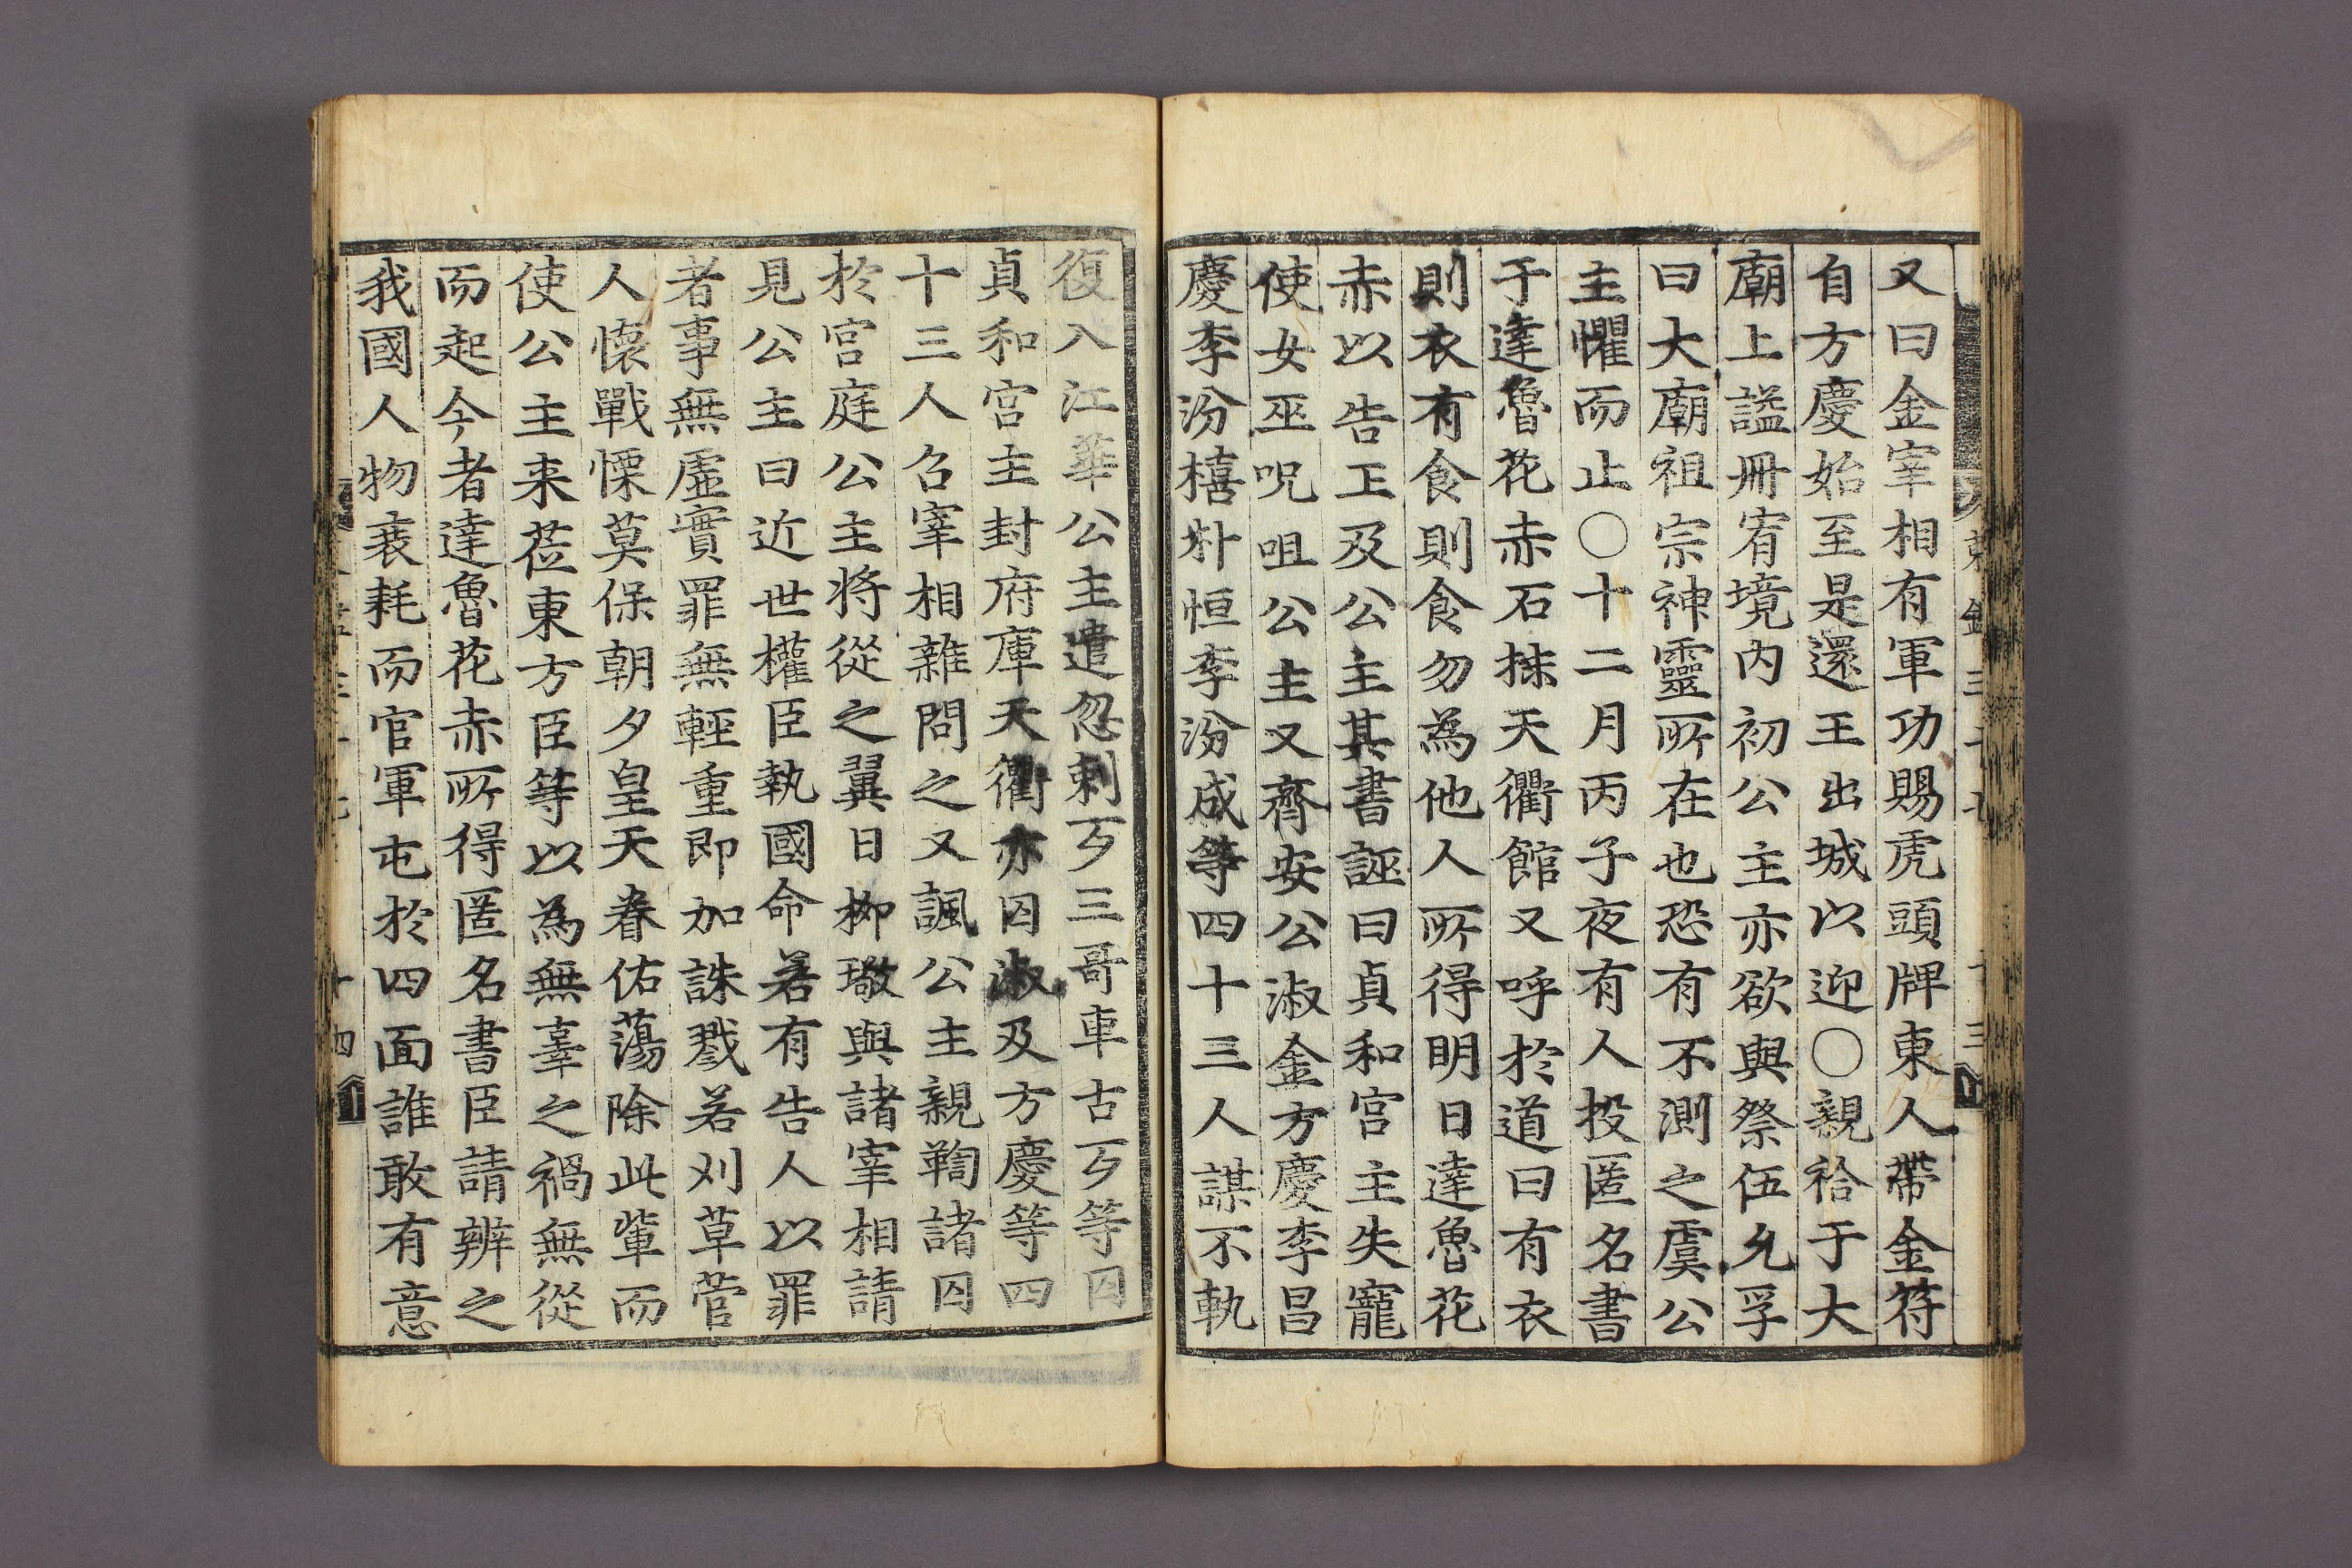 又曰金宰相有軍功賜虎頭牌東人帶金符
自方慶始至是還王出城以迎〇親祫于大
廟上謚冊宥境内初公主亦欲與祭伍允孚
曰大廟祖宗神靈所在也恐有不測之虞公
主懼而止〇十二月丙子夜有人投匿名書
于達魯花赤石抹天衢館又呼於道曰有衣
則衣有食則食勿為他人所得明日達魯花
赤以告王及公主其書誣曰貞和宮主失寵
使女巫呪咀公主又齊安公淑金方慶李昌
慶李汾禧朴恒李汾成等四十三人謀不軌
復入江華公主遣忽剌歹三哥車古歹等囚
貞和宮主封府庫天衢亦囚淑及方慶等四
十三人召宰相雜問之又諷公主親鞫諸囚
於宮庭公主將從之翼日柳璥與諸宰相請
見公主曰近世權臣執國命若有告人以罪
者事無虛實罪無輕重即加誅戮若刈草菅
人懷戰慄莫保朝夕皇天眷佑蕩除此輩而
使公主来莅東方臣等以為無辜之禍無從
而起今者達魯花赤所得匿名書臣請辨之
我國人物衰耗而官軍屯於四面誰敢有意
十四